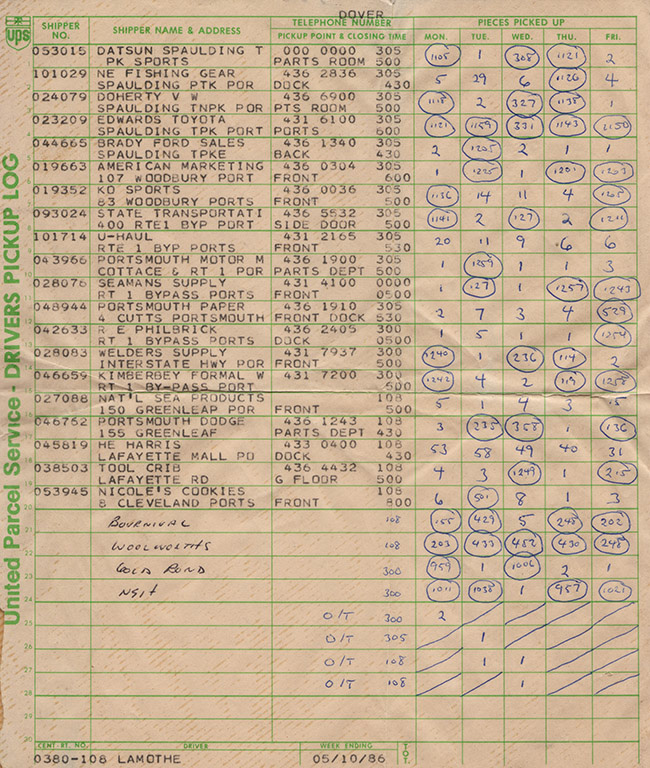 DOVER
ups SHIPPER NO. SHIPPER NAME & ADDRESS TELEPHONE NUMBER PICKUP POINT & CLOSING TIME PIECES PICKED UP
MON. TUE. WED. THU. FRI.
053015 DATSUN SPAULDING T 000 0000 305 1105 1 308 1121 2
PK SPORTS PARTS ROOM 500
101029 NE FISHING GEAR 436 2836 305 5 29 6 1126 4
SPAULDING PTK POR DOCK 430
024079 DOHERTY V W 436 6900 305 1118 2 327 1138 1
SPAULDING TNPK POR PTS ROOM 500
023209 EDWARDS TOYOTA 431 6100 305 1121 1159 331 1143 1150
SPAULDING TPK PORT PORTS 600
044665 BRADY FORD SALES 436 1340 305 2 1205 2 1 1
SPAULDING TPKE BACK 430
019663 AMERICAN MARKETING 436 0304 305 1 1225 1 1201 1203
107 WOODBURY PORT FRONT 600
019352 KO SPORTS 436 0036 305 1136 14 11 4 1205
83 WOODBURY PORTS FRONT 500
093024 STATE TRANSPORTATI 436 5532 305 1141 2 127 2 1211
400 RTE1 BYP PORT SIDE DOOR 500
101714 U-HAUL 431 2165 305 20 11 9 6 6
RTE 1 BYP PORTS FRONT 530
043966 PORTSMOUTH MOTOR M 436 1900 305 1 1259 1 1 3
COTTACE & RT 1 POR PARTS DEPT 500
028076 SEAMANS SUPPLY 431 4100 0000 1 127 1 1257 1243
RT 1 BYPASS PORTS FRONT 0500
048944 PORTSMOUTH PAPER 436 1910 305 2 7 3 4 529
4 CUTTS PORTSMOUTH FRONT DOCK 530
042633 R E PHILBRICK 436 2405 300 1 5 1 1 1254
RT 1 BYPASS PORTS DOCK 0500
028083 WELDERS SUPPLY 431 7937 300 1240 1 236 114 2
INTERSTATE HWY POR FRONT 500
046659 KIMBERSEY FORMAL W 431 7200 300 1242 4 2 119 1258
RT 1 BY-PASS PORT 500
027088 NAT'L SEA PRODUCTS 108 5 1 4 3 15
150 GREENLEAP POR FRONT 500
046752 PORTSMOUTH DODGE 436 1243 108 3 235 358 1 136
155 GREENLEAF PARTS DEPT 430
045819 HE HARRIS 433 0400 108 53 58 49 40 31
LAFAYETTE MALL PO DOCK 430
038503 TOOL CRIB 436 4432 108 4 3 1249 1 215
LAFAYETTE RD G FLOOR 500
053945 NICOLE'S COOKIES 108 6 501 8 1 3
8 CLEVELAND PORTS FRONT 800
BOURNIVAL 108 155 429 5 248 202
WOOLWORTHS 108 203 433 452 430 248
GOLD BOND 300 959 1 1006 2 1
NGIT 300 1011 1038 1 957 1021
O/T 300 2
O/T 305 1
O/T 108 1 1
O/T 108 1
United Parcel Service DRIVERS PICKUP LOG
CENT.-RT. NO. DRIVER WEEK ENDING TOT.
0380-108 LAMOTHE 05/10/86